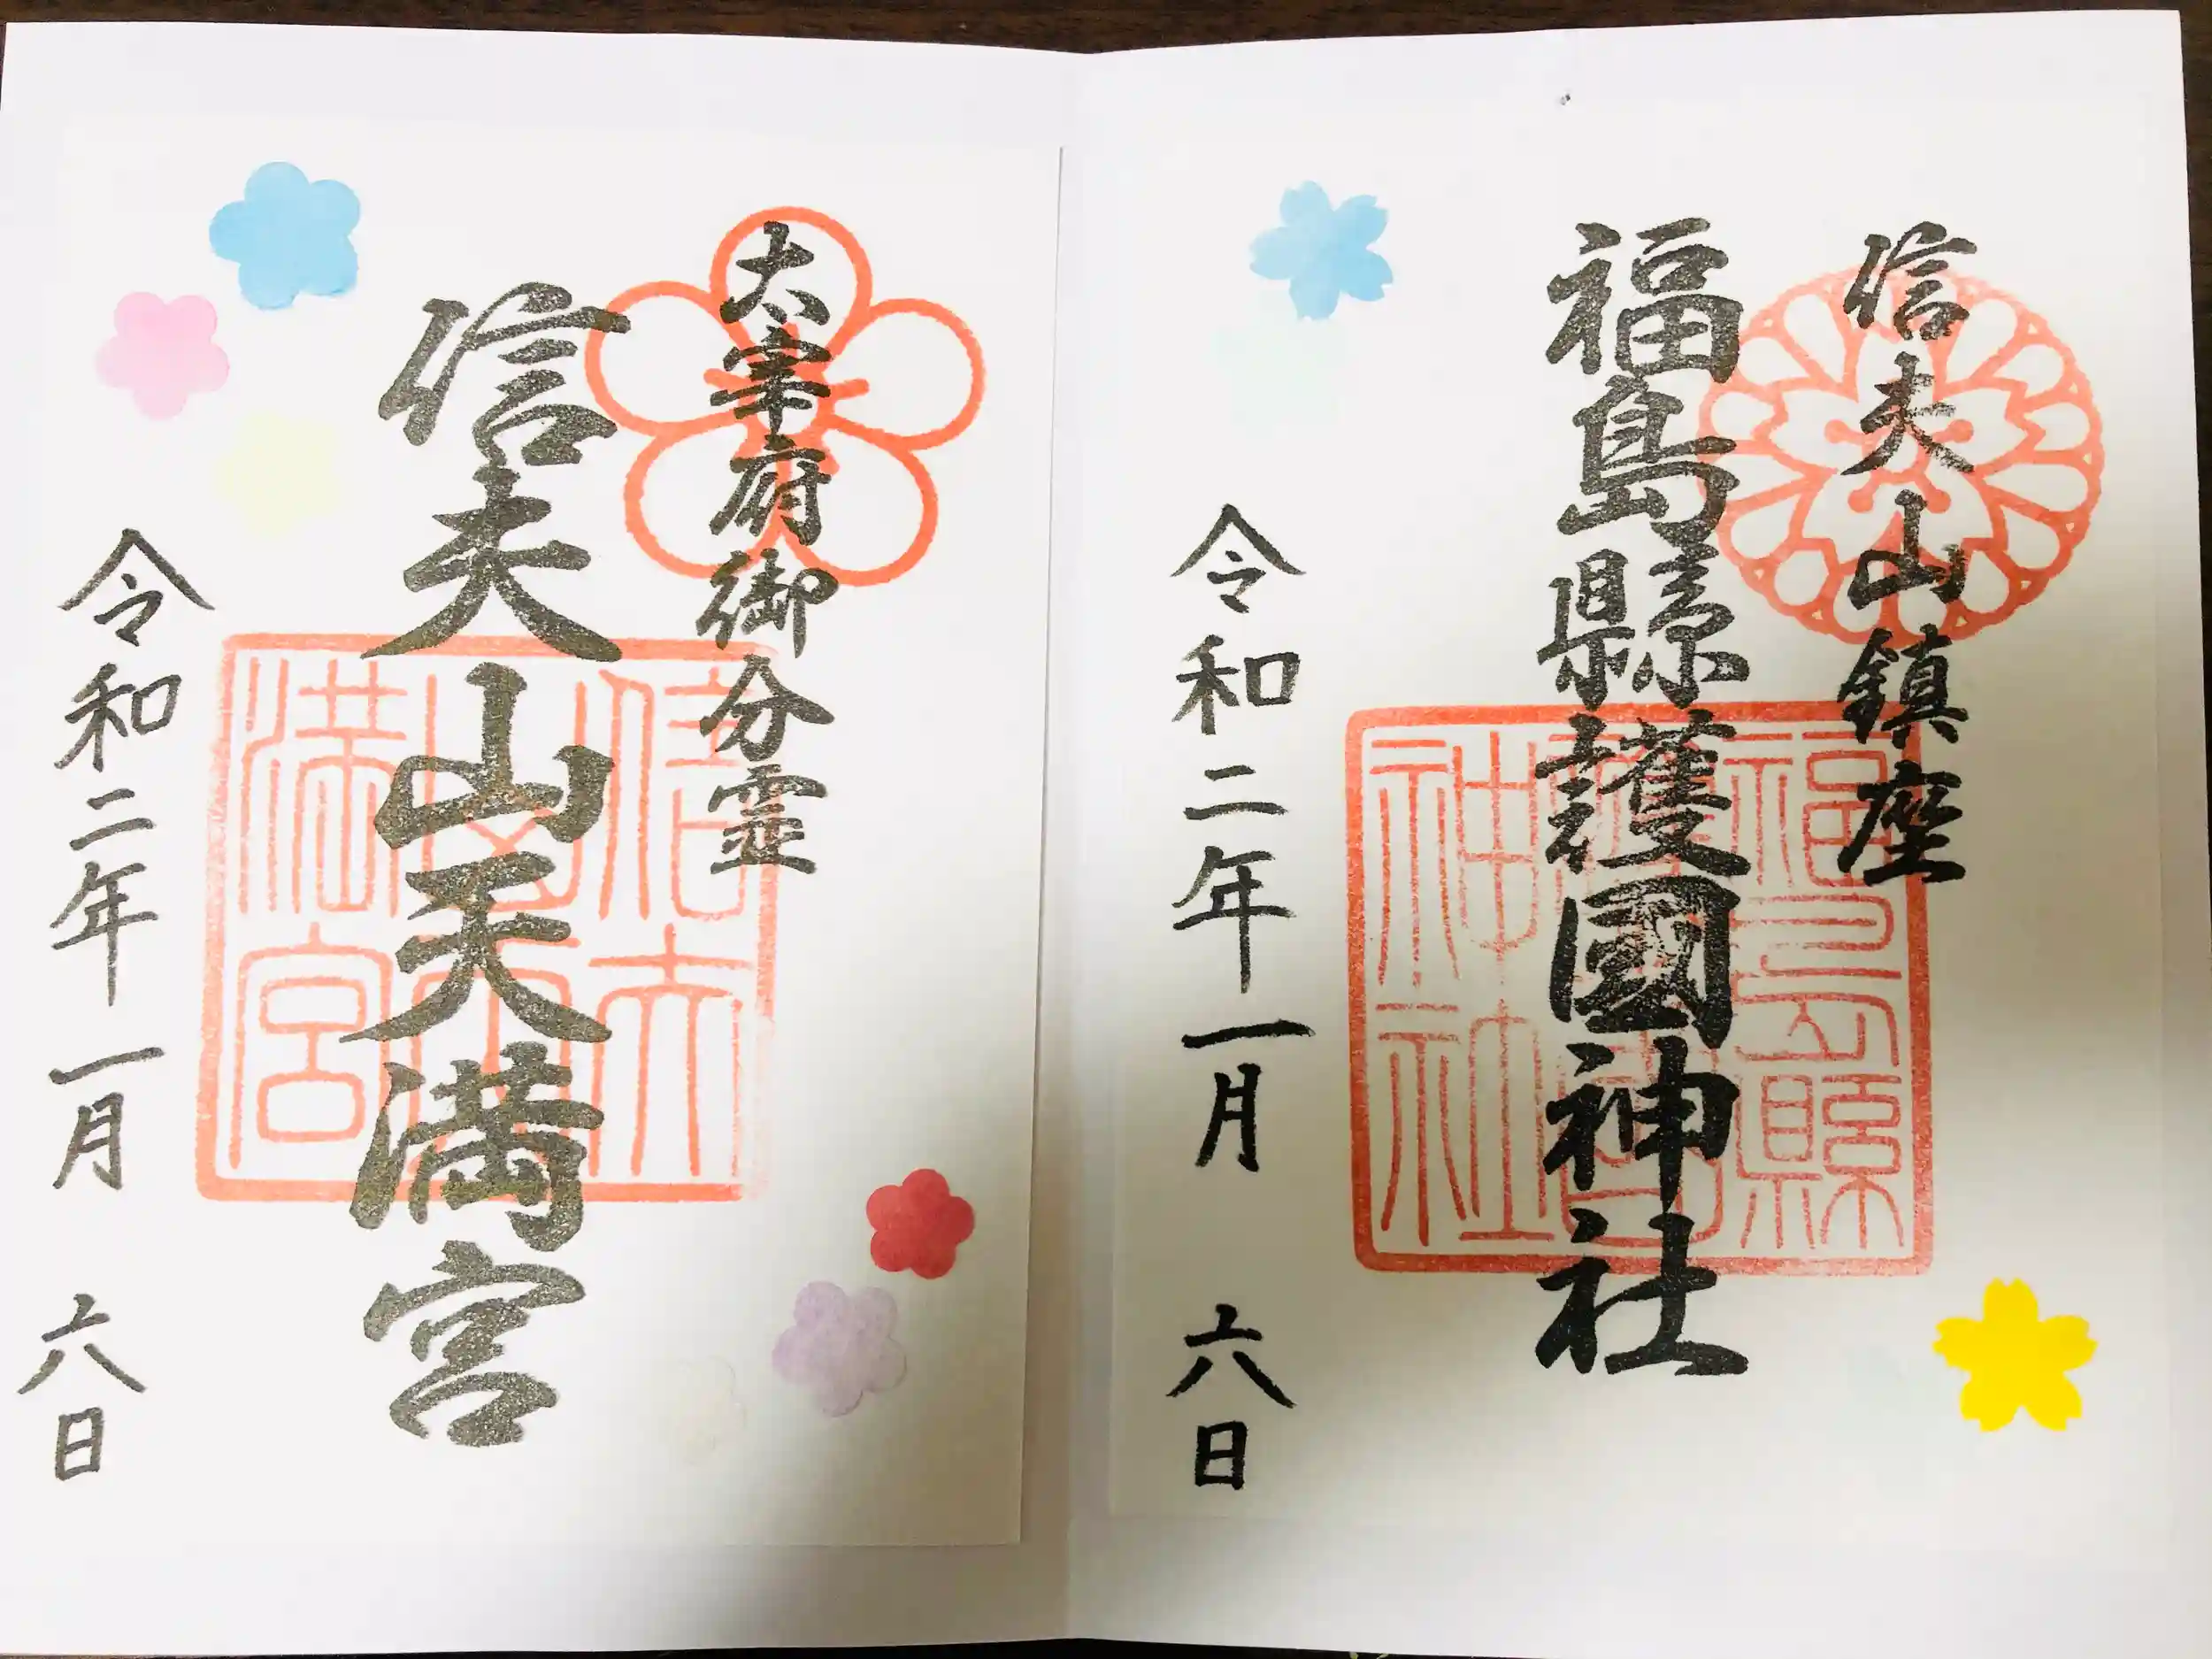 信夫山鎮座
福島縣護國神社
福島縣
護國
神社
令和二年一月 六日
太宰府御分霊
信夫山天満宮
信夫
山天
満宮
令和二年一月 六日